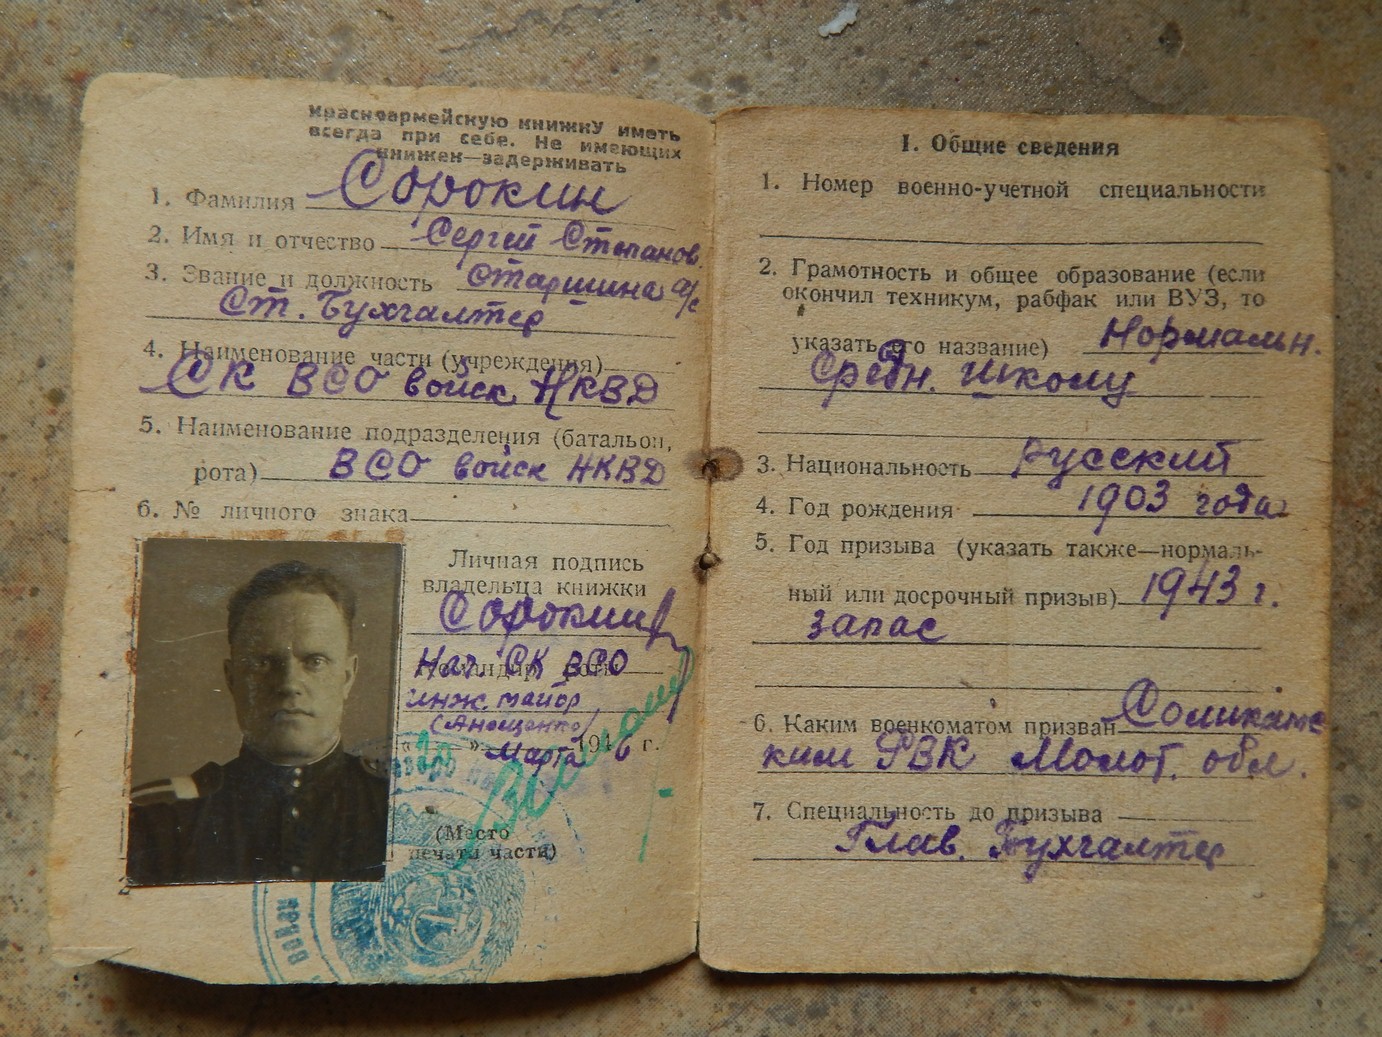 Красноармейскую книжку иметь
всегда при себе. Не имеющих
книжек—задерживать
1. Фамилия Сорокин
2. Имя и отчество Сергей Степанов.
3. Звание и должность Старшина а/с
Ст. Бухгалтер
4. Наименование части (учреждения)
СК ВСО войск НКВД
5. Наименование подразделения (батальон,
рота) ВСО войск НКВД
6. № личного знака
Личная подпись
владельца книжки
Сорокин
Командир роты
Нач. СК ВСО
инж. майор
(Анощенко)
« » Марта 1946 г.
(Место
печати части)
2
I. Общие сведения
1. Номер военно-учетной специальности
2. Грамотность и общее образование (если
окончил техникум, рабфак или ВУЗ, то
указать его название) Нормальн.
Средн. школу
3. Национальность Русский
4. Год рождения 1903 года
5. Год призыва (указать также—нормаль-
ный или досрочный призыв) 1943 г.
запас
6. Каким военкоматом призван Соликамс
ким РВК Молот. обл.
7. Специальность до призыва
Глав. Бухгалтер